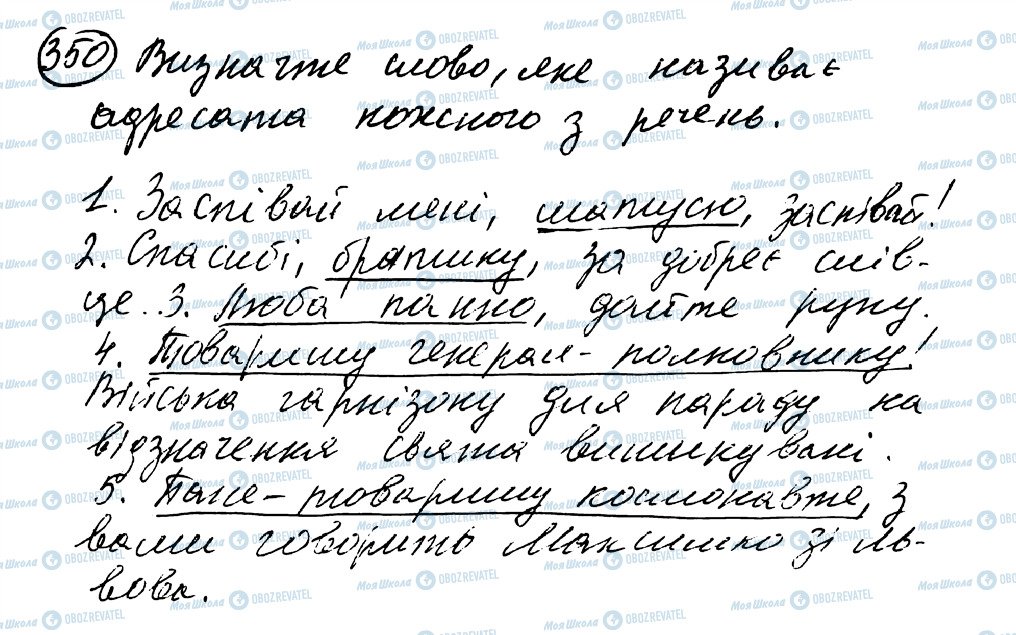 350 Визначте слово, яке називає
адресата кожного з речень.
1. Заспівай мені, матусю, заспівай!
2. Спасибі, братику, за добреє слів-
це... 3. Люба панно, дайте руку.
4. Товаришу генерал-полковнику!
Війська гарнізону для параду на
відзначення свята вишикувані.
5. Пане-товаришу космонавте, з
вами говорить Максимко зі Ль-
вова.